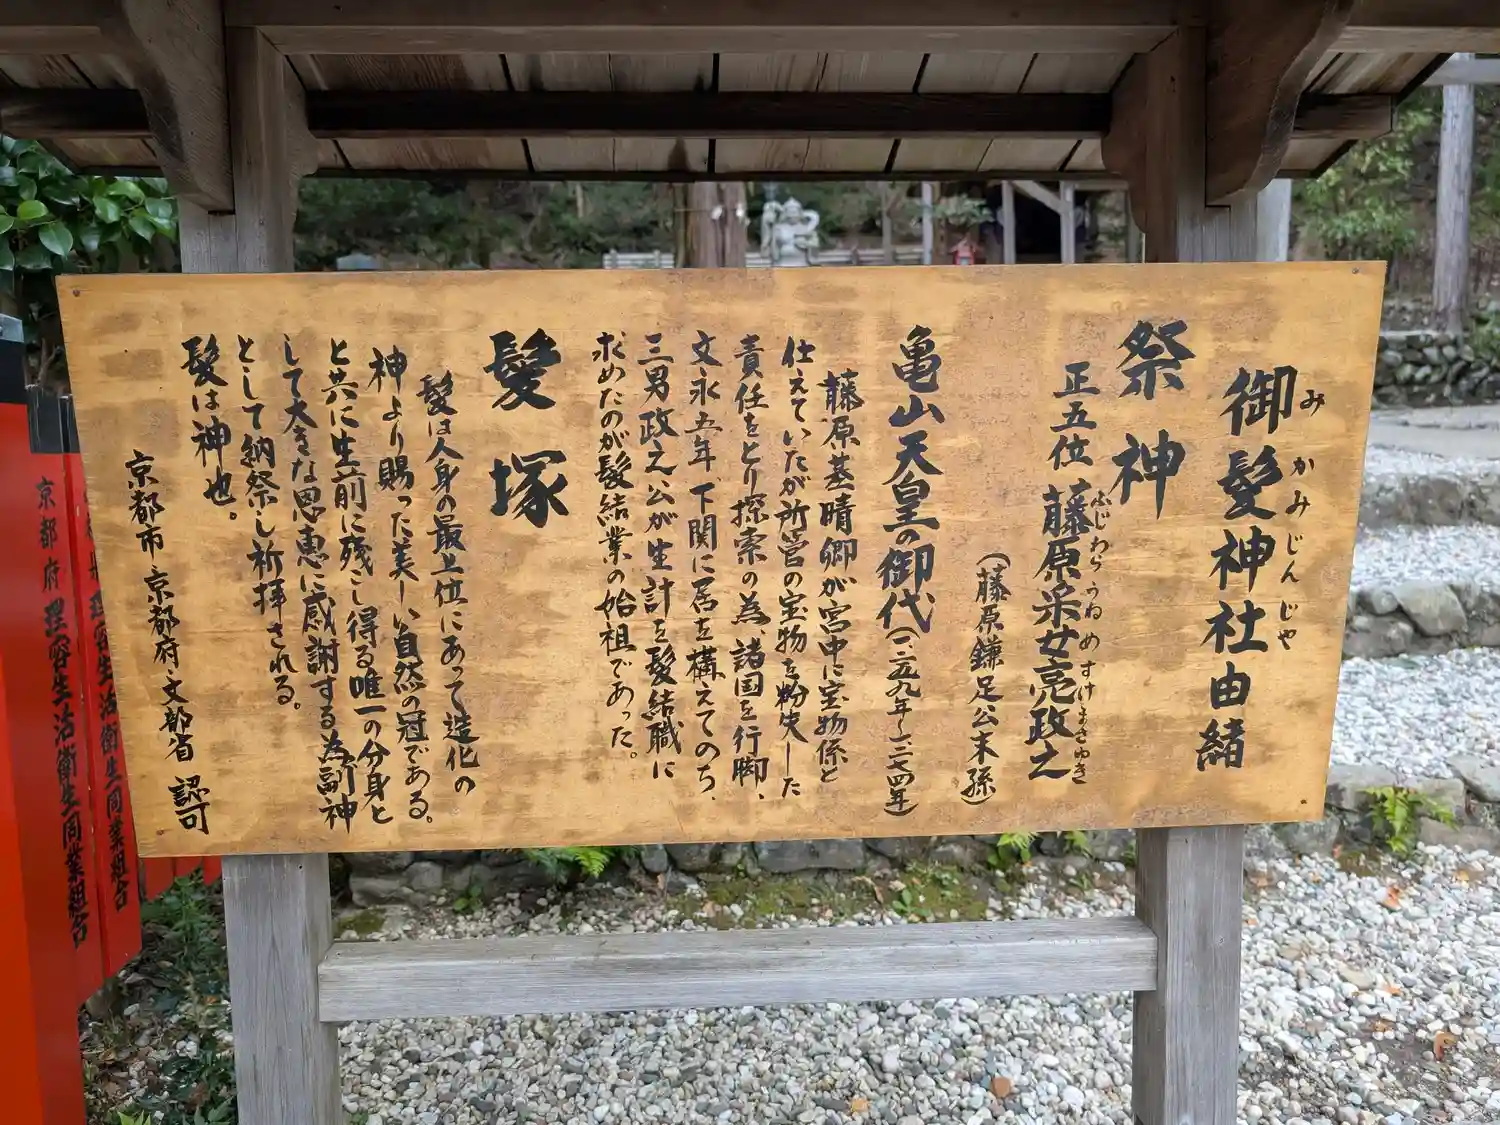 御髪神社由緒
みかみじんじゃ
祭神
正五位 藤原采女亮政之
ふじわらうねめすけまさゆき
(藤原鎌足公末孫)
亀山天皇の御代(一、二五九年〜一二七四年)
藤原基晴卿が宮中に宝物係と
仕えていたが所管の宝物を紛失した
責任をとり探索の為、諸国を行脚、
文永五年、下関に居を構えてのち、
三男政之公が生計を髪結職に
求めたのが髪結業の始祖であった。
髪塚
髪は人身の最上位にあって造化の
神より賜った美しい自然の冠である。
と共に生前に残こし得る唯一の分身と
して大きな恩恵に感謝する為副神
として納祭し祈拝される。
髪は神也。
京都市 京都府・文部省 認可
京都府理容生活衛生同業組合
理容生活衛生同業組合